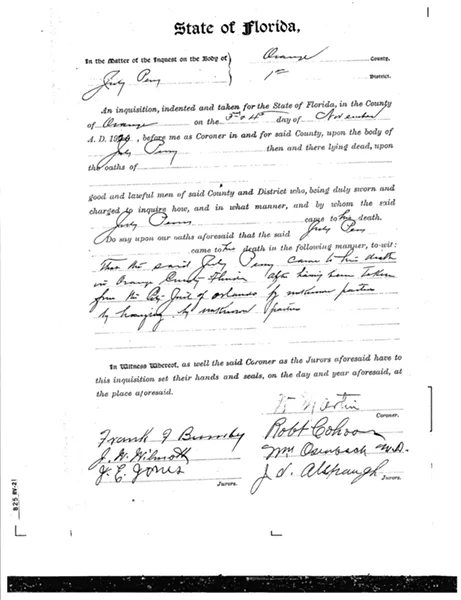 State of Florida,
In the Matter of the Inquest on the Body of
July Perry
Orange County,
1st District.
An inquisition, indented and taken for the State of Florida, in the County
of Orange on the 3rd & 4th day of November
A. D. 1920, before me as Coroner in and for said County, upon the body of
July Perry then and there lying dead, upon
the oaths of
good and lawful men of said County and District who, being duly sworn and
charged to inquire how, and in what manner, and by whom the said
July Perry came to his death.
Do say upon our oaths aforesaid that the said July Perry
came to his death in the following manner, to-wit:
That the said July Perry came to his death
in Orange County Florida after having been taken
from the City Jail of Orlando by unknown parties
by hanging by unknown parties
In Witness Whereof, as well the said Coroner as the Jurors aforesaid have to
this inquisition set their hands and seals, on the day and year aforesaid, at
the place aforesaid.
Martin
Coroner.
Frank F
Robt Cohoon
J. W. Wilmott
Wm M.D.
J. E. Jones
J. D. Alspaugh
Jurors. Jurors.